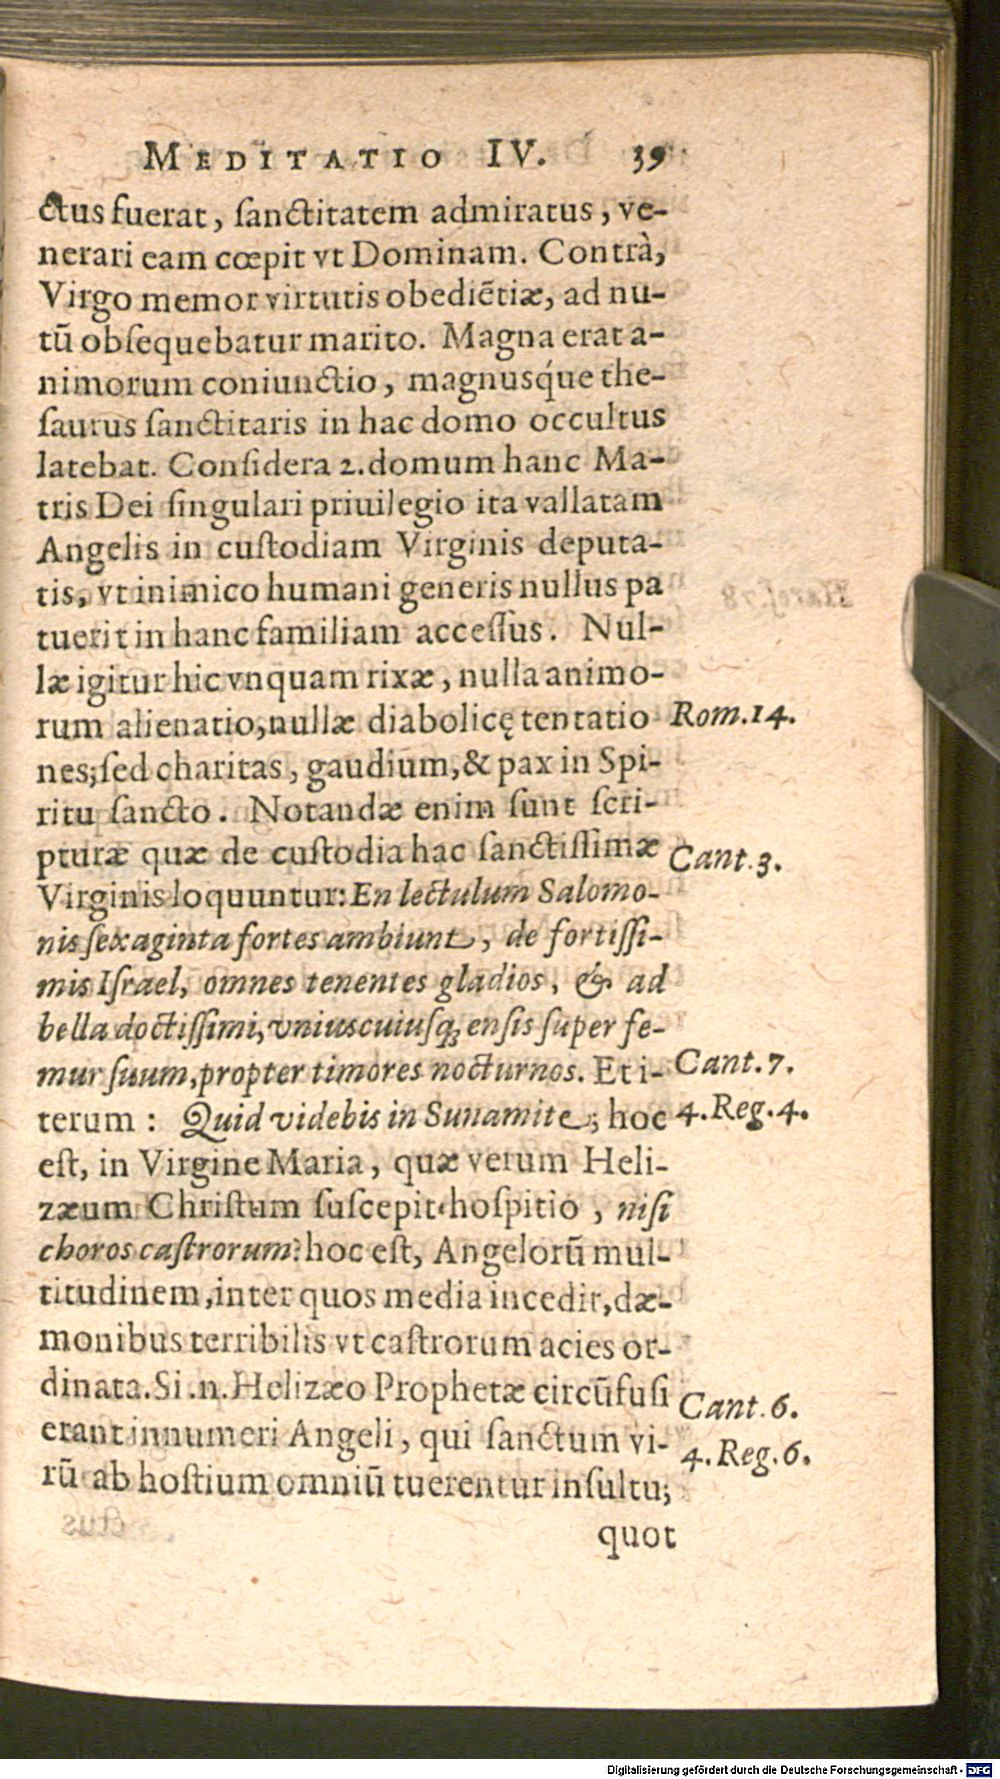 MEDITATIO IV. 39
ctus fuerat, ſanctitatem admiratus, ve-
nerari eam cœpit vt Dominam. Contrà,
Virgo memor virtutis obediẽtiæ, ad nu-
tũ obſequebatur marito. Magna erat a-
nimorum coniunctio, magnusq́ue the-
ſaurus ſanctitatis in hac domo occultus
latebat. Conſidera 2. domum hanc Ma-
tris Dei ſingulari priuilegio ita vallatam
Angelis in cuſtodiam Virginis deputa-
tis, vt inimico humani generis nullus pa
tuerit in hanc familiam acceſſus. Nul-
læ igitur hic vnquam rixæ, nulla animo-
rum alienatio, nullæ diabolicę tentatio Rom. 14.
nes; ſed charitas, gaudium, & pax in Spi-
ritu ſancto. Notandæ enim ſunt ſcri-
pturæ quæ de cuſtodia hac ſanctiſſimæ Cant. 3.
Virginis loquuntur: En lectulum Salomo-
nis ſexaginta fortes ambiunt, de fortiſſi-
mis Iſrael, omnes tenentes gladios, & ad
bella doctiſſimi, vniuscuiuſq; enſis ſuper fe-
mur ſuum, propter timores nocturnos. Et i- Cant. 7.
terum: Quid videbis in Sunamite; hoc 4. Reg. 4.
eſt, in Virgine Maria, quæ verum Heli-
zæum Chriſtum ſuſcepit hoſpitio, niſi
choros caſtrorum? hoc eſt, Angelorũ mul-
titudinem, inter quos media incedit, dæ-
monibus terribilis vt caſtrorum acies or-
dinata. Si .n. Helizæo Prophetæ circũfuſi Cant. 6.
erant innumeri Angeli, qui ſanctum vi- 4. Reg. 6.
rũ ab hoſtium omniũ tuerentur inſultu;
quot
Digitalisierung gefördert durch die Deutsche Forschungsgemeinschaft - DFG